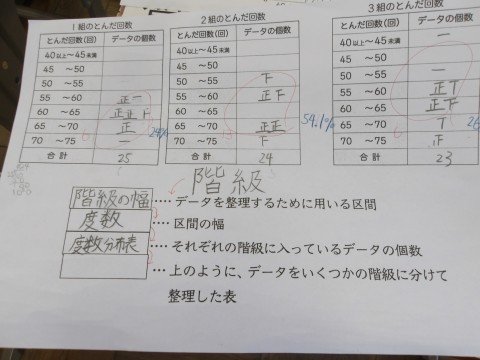 1組のとんだ回数
とんだ回数(回) データの個数
40以上~45未満
45 ~50
50 ~55
55 ~60 正一
60 ~65 正正下
65 ~70 正 24%
70 ~75 一
合計 25
2組のとんだ回数
とんだ回数(回) データの個数
40以上~45未満
45 ~50
50 ~55 下
55 ~60 正下
60 ~65
65 ~70 正正 54.1%
70 ~75 下
合計 24
3組のとんだ回数
とんだ回数(回) データの個数
40以上~45未満 一
45 ~50
50 ~55 一
55 ~60 正丅
60 ~65 正下
65 ~70 丅 26
70 ~75 正
合計 23
階級
階級の幅 …… データを整理するために用いる区間
度数 …… 区間の幅
度数分布表 …… それぞれの階級に入っているデータの個数
…… 上のように、データをいくつかの階級に分けて
整理した表